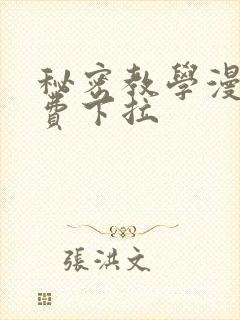 秘密教學漫
費下拉
張洪文